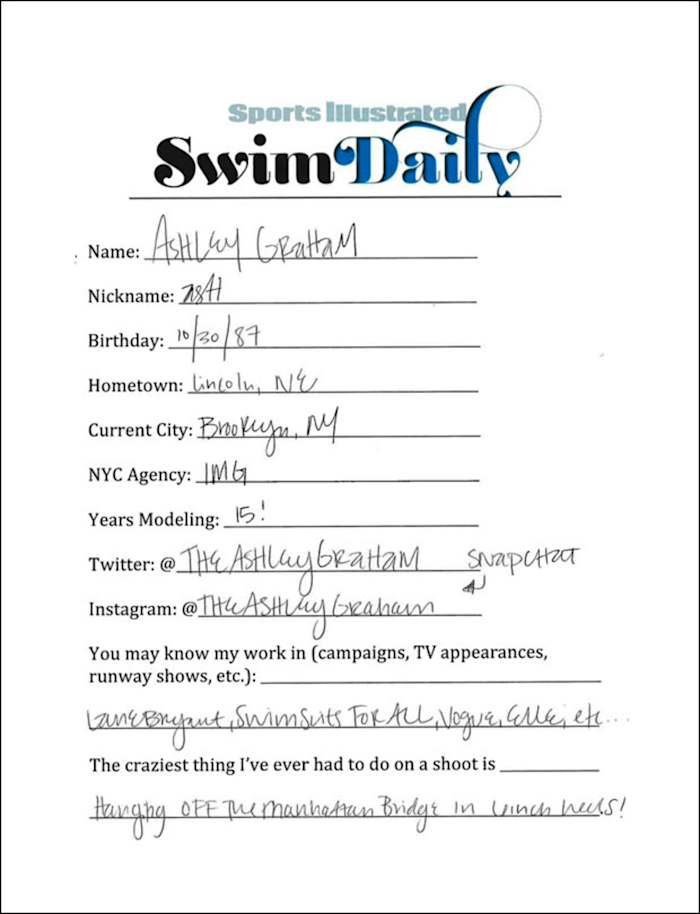 Sports Illustrated
Swim Daily
Name: ASHLEY GRAHAM
Nickname: ASH
Birthday: 10/30/87
Hometown: Lincoln, NE
Current City: Brooklyn, NY
NYC Agency: IMG
Years Modeling: 15!
Twitter: @THEASHLEYGRAHAM SNAPCHAT
Instagram: @THEASHLEYGraham
You may know my work in (campaigns, TV appearances,
runway shows, etc.):
Lane Bryant, SwimSuits FOR ALL, Vogue, Elle, etc...
The craziest thing I've ever had to do on a shoot is
Hanging OFF THE Manhattan Bridge in 6 inch heels!